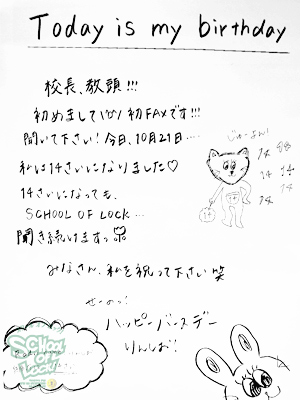 Today is my birthday
校長、教頭!!!
初めまして(^^)初FAXです!!!
聞いて下さい!今日、10月21日….
私は14さいになりました♡
14さいになっても、
SCHOOL OF LOCK…
聞き続けますっ
みなさん、私を祝って下さい 笑
せーのっ!
ハッピーバースデー
りんしお!
14
14 14
14 14
14
SCHOOL OF LOCK!